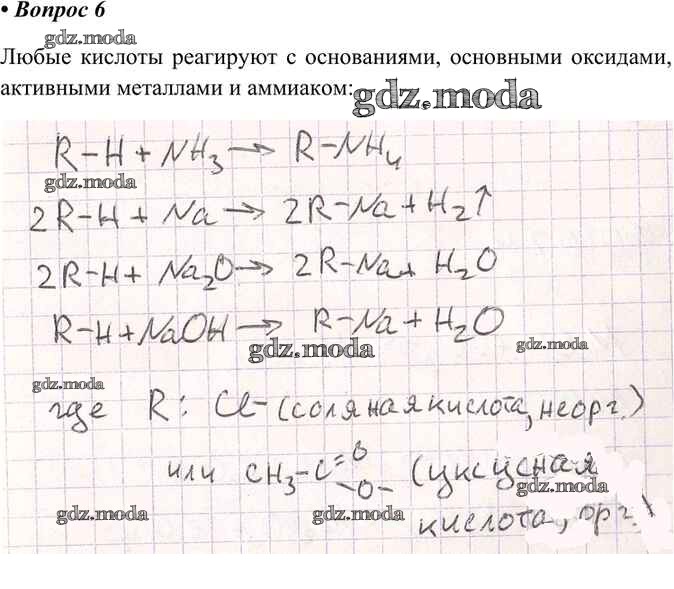 • Вопрос 6
gdz.moda
Любые кислоты реагируют с основаниями, основными оксидами,
активными металлами и аммиаком:
gdz.moda
R-H + NH₃ → R-NH₄
gdz.moda
2R-H + Na → 2R-Na + H₂↑
2R-H + Na₂O → 2R-Na + H₂O
R-H + NaOH → R-Na + H₂O
gdz.moda gdz.moda
gdz.moda
где R: Cl- (соляная кислота, неорг.)
или CH₃-C=O -O- (уксусная
gdz.moda gdz.moda gdz.moda
кислота, орг.)